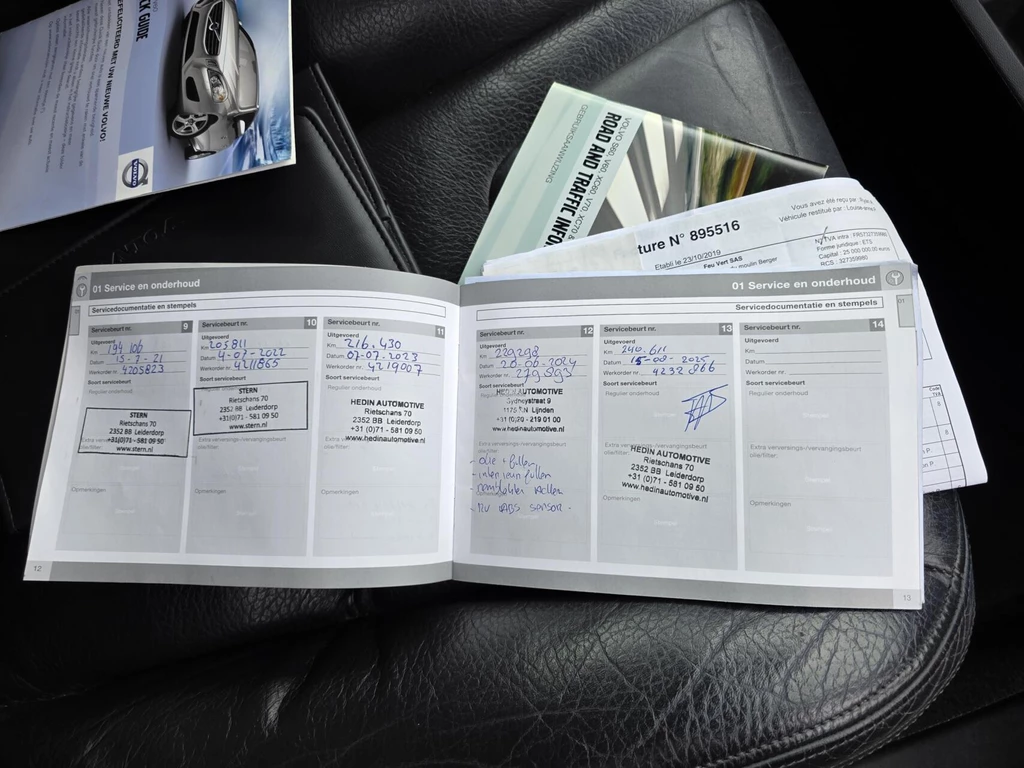 QUICK GUIDE
GEFELICITEERD MET UW NIEUWE VOLVO!
VOLVO
VOLVO S60, V60, XC60, V70, XC70 &
ROAD AND TRAFFIC INFO
GEBRUIKSAANWIJZING
ture N° 895516
Etabli le 23/10/2019
Feu Vert SAS
moulin Berger
Vous avez été reçu par
Véhicule restitué par : Louise
N° TVA intra :
Forme juridique : ETS
Capital : 25 000 000,00 euros
RCS : 327359980
01 Service en onderhoud
Servicedocumentatie en stempels
Servicebeurt nr. 9
Uitgevoerd
Km 194 106
Datum 15-7-21
Werkorder nr. 4205823
Soort servicebeurt
Regulier onderhoud
STERN
Rietschans 70
2352 BB Leiderdorp
+31(0)71 - 581 09 50
www.stern.nl
Opmerkingen
Servicebeurt nr. 10
Uitgevoerd
Km 205811
Datum 4-07-2022
Werkorder nr. 4211865
Soort servicebeurt
STERN
Rietschans 70
2352 BB Leiderdorp
+31(0)71 - 581 09 50
www.stern.nl
Extra verversings-/vervangingsbeurt
olie/filter:
Opmerkingen
Servicebeurt nr. 11
Uitgevoerd
Km 216.430
Datum 07-07-2023
Werkorder nr. 4219007
Soort servicebeurt
Regulier onderhoud
HEDIN AUTOMOTIVE
Rietschans 70
2352 BB Leiderdorp
+31 (0)71 - 581 09 50
www.hedinautomotive.nl
Opmerkingen
12
01 Service en onderhoud
Servicedocumentatie en stempels
01
Servicebeurt nr. 12
Uitgevoerd
Km 229298
Datum 20-06-2024
Werkorder nr. 279893
Soort servicebeurt
HEDIN AUTOMOTIVE
Sydneystraat 9
1175 RN Lijnden
+31 (0)20 - 219 01 00
www.hedinautomotive.nl
Extra verversings-/vervangingsbeurt
olie/filter:
- olie + filter
- interieurfilter
- RV ABS sensor -
Servicebeurt nr. 13
Uitgevoerd
Km 240.611
Datum 15-08-2025
Werkorder nr. 4232866
Soort servicebeurt
Regulier onderhoud
Extra verversings-/vervangingsbeurt
olie/filter:
HEDIN AUTOMOTIVE
Rietschans 70
2352 BB Leiderdorp
+31 (0)71 - 581 09 50
www.hedinautomotive.nl
Opmerkingen
Servicebeurt nr. 14
Uitgevoerd
Km
Datum
Werkorder nr.
Soort servicebeurt
Regulier onderhoud
Extra verversings-/vervangingsbeurt
olie/filter:
Opmerkingen
13